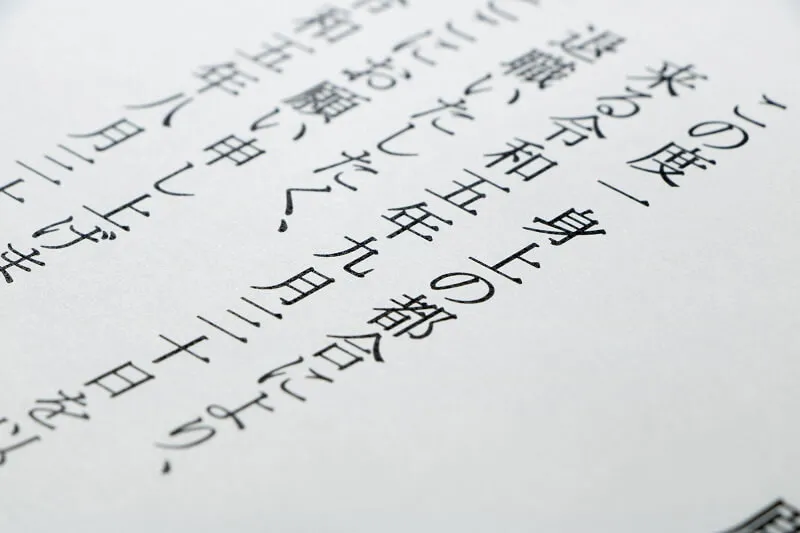 この度一身上の都合により、
来る令和五年九月三十日を
退職いたしたく、
ここにお願い申し上げま
令和五年八月三十